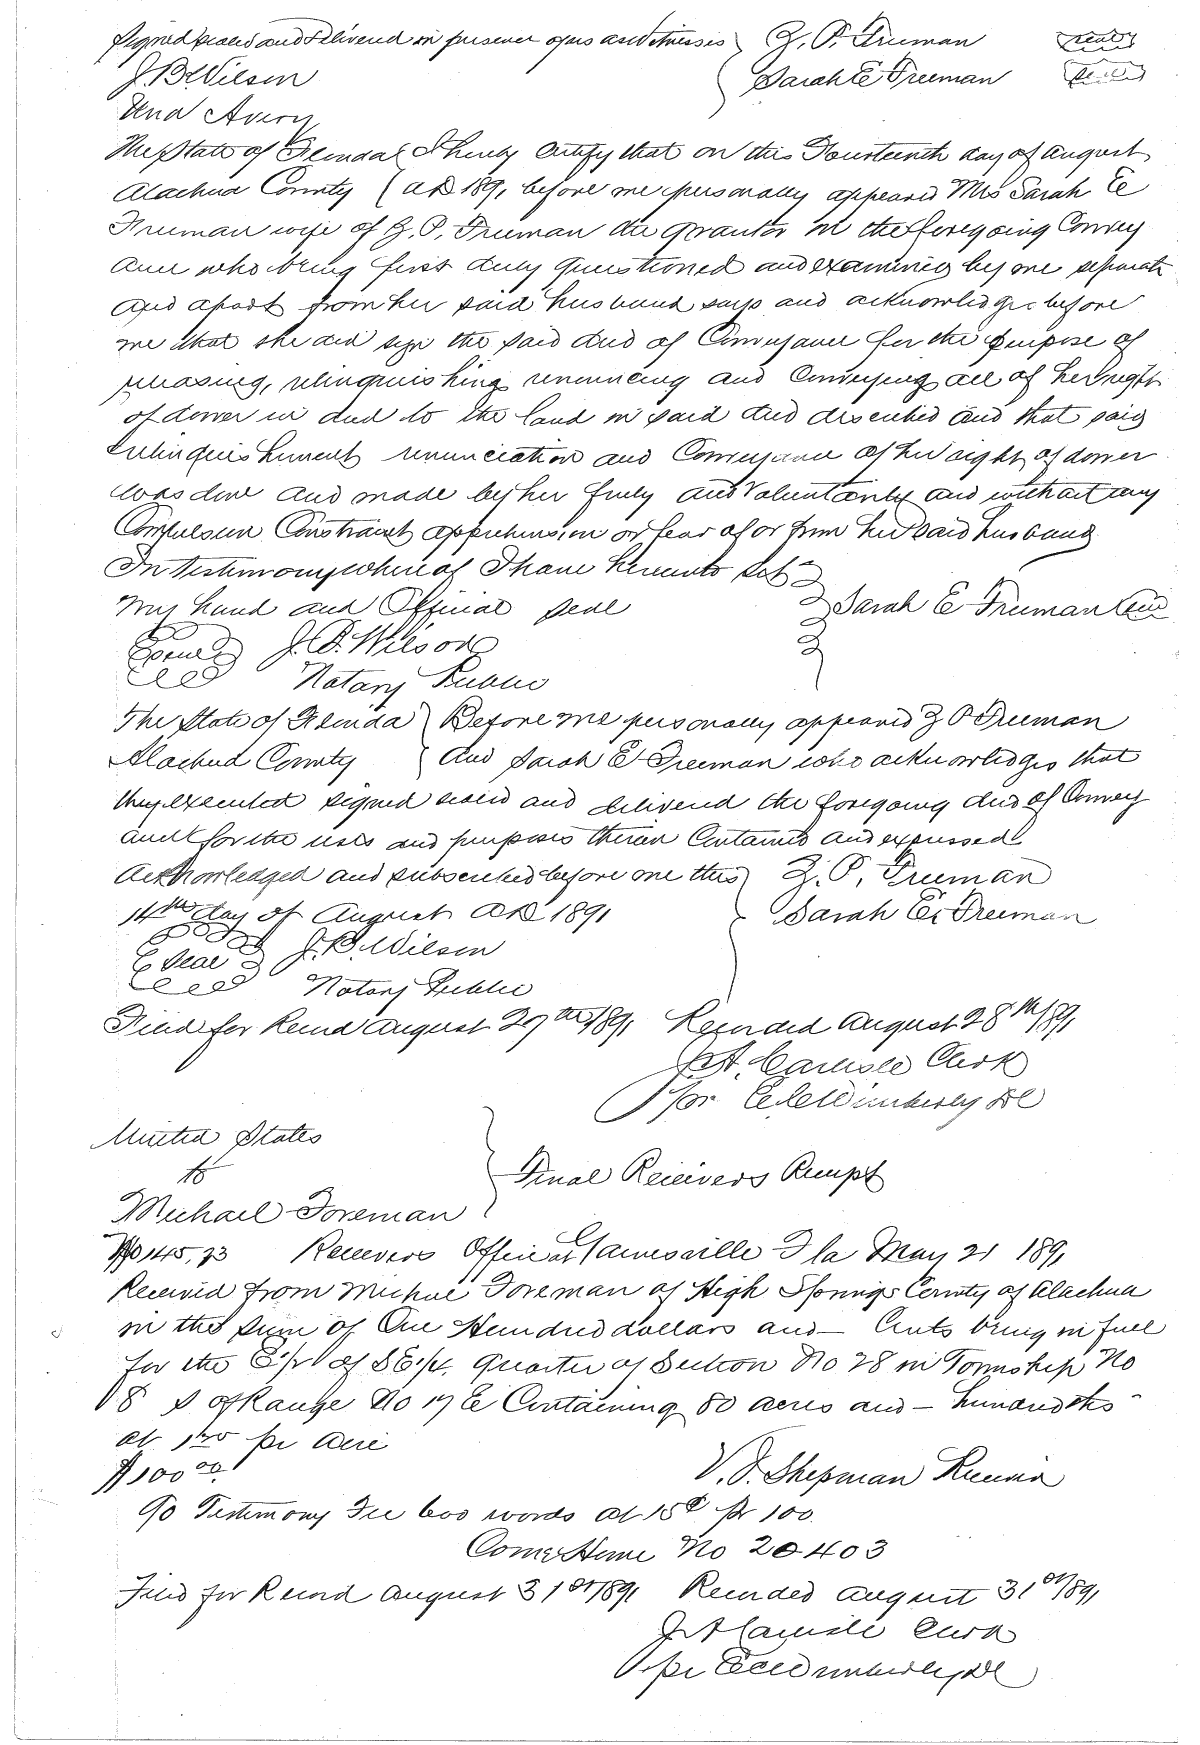 Signed sealed and delivered in presence of us as witnesses Z. P. Freeman (seal)
J B Wilson Sarah E Freeman (seal)
Una Avery
The State of Florida I hereby certify that on this Fourteenth day of August
Alachua County AD 1891 before me personally appeared Mrs Sarah E
Freeman wife of Z. P. Freeman the grantor in the foregoing Convey
ance who being first duly questioned and examined by me separate
and apart from her said husband says and acknowledges before
me that she did sign the said deed of Conveyance for the purpose of
releasing, relinquishing renouncing and Conveying all of her right
of dower in and to the land in said deed described and that said
relinquishment renunciation and Conveyance of her right of dower
was done and made by her freely and Voluntarily and without any
Compulsion Constraint apprehension or fear of or from her said husband
In Testimony whereof I have hereunto set
my hand and Official seal Sarah E Freeman
Seal J. B. Wilson
Notary Public
The State of Florida Before me personally appeared Z P Freeman
Alachua County and Sarah E Freeman who acknowledges that
they executed signed sealed and delivered the foregoing deed of Convey
ance for the uses and purposes therein Contained and expressed
Acknowledged and subscribed before me this Z. P. Freeman
14th day of August AD 1891 Sarah E. Freeman
Seal J. B. Wilson
Notary Public
Filed for Record August 27th 1891 Recorded August 28th 1891
J. A. Carlisle Clerk
per Wimberly DC
United States
to Final Receivers Receipt
Michael Foreman
No 14523 Receivers Office at Gainesville Fla May 21 1891
Received from Michael Foreman of High Springs County of Alachua
in the sum of One Hundred dollars and — Cents being in full
for the E ½ of SE ¼ Quarter of Section No 28 in Township No
8 S of Range No 17 E Containing 80 acres and — hundredths
at 1 25 per Acre
$100 00 V. J. Shipman Receiver
90 Testimony Fee 600 words at 15c per 100
Com Home No 20403
Filed for Record August 31st 1891 Recorded August 31st 1891
J A Carlisle Clerk
per Wimberly DC